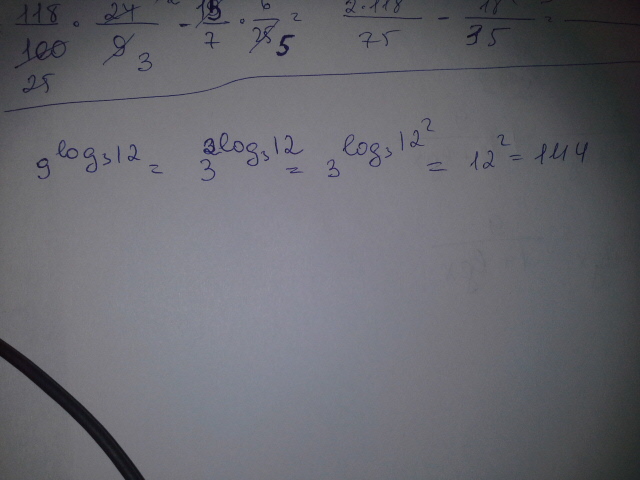 118/100 25 · 27/9 3 - 13/7 · 6/25 5 = 2·118/75 - 18/35 =
9^log₃12 = 3^2log₃12 = 3^log₃12² = 12² = 144